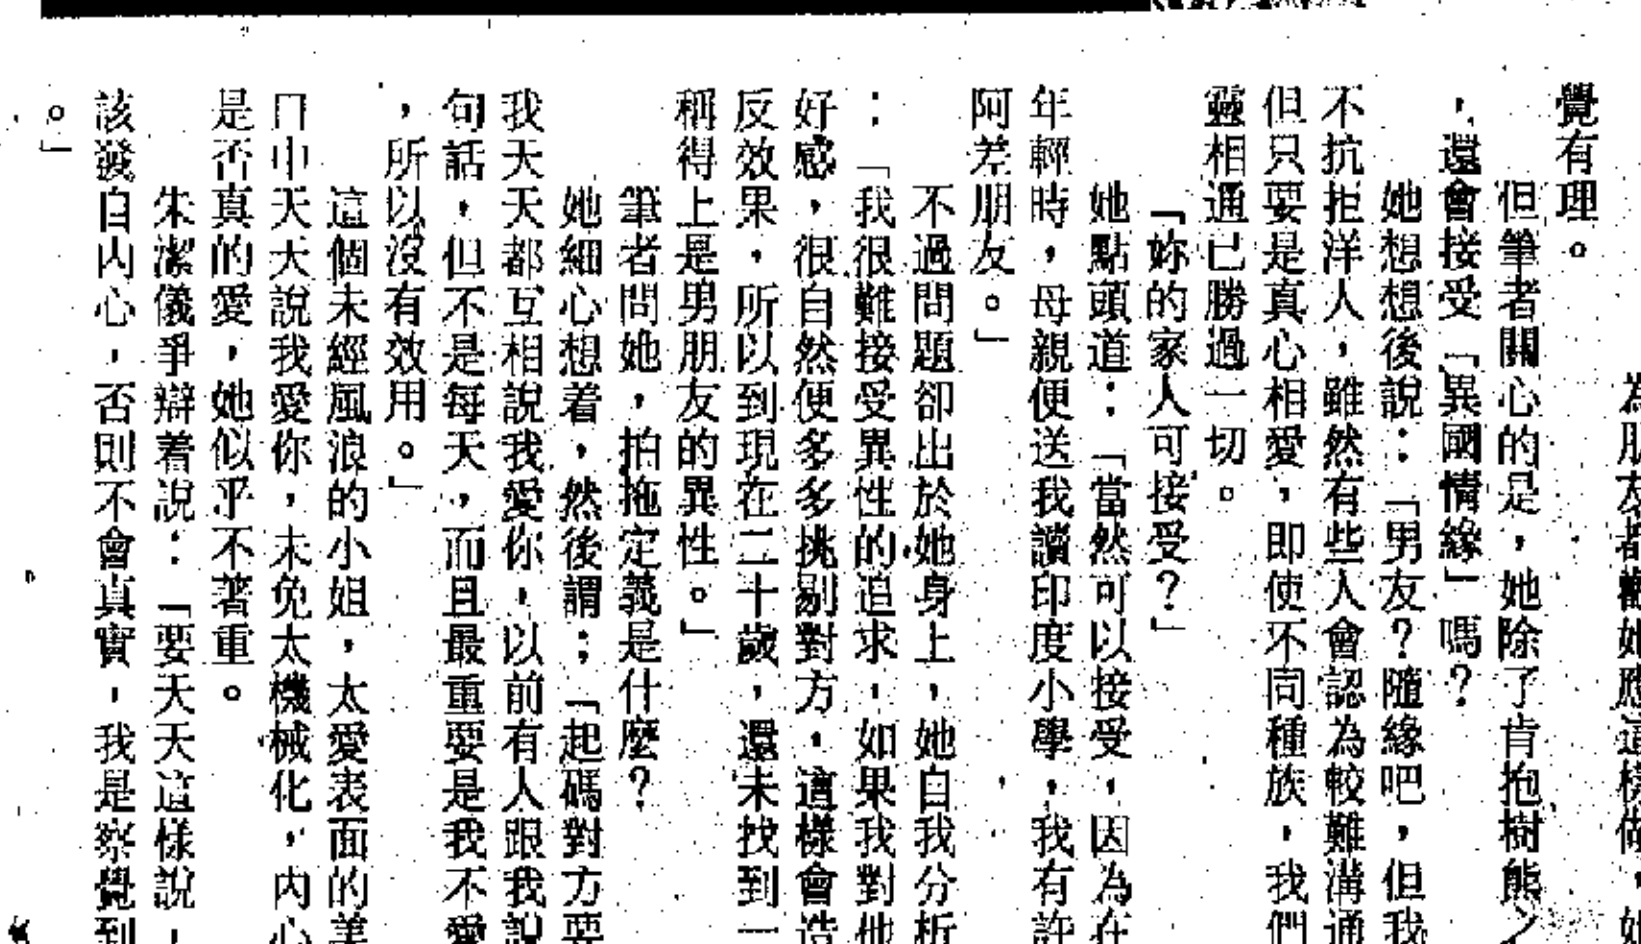 為朋友都勸她應這樣做，她
覺有理。
但筆者關心的是，她除了肯抱樹熊之
，還會接受「異國情緣」嗎？
她想想後說：「男友？隨緣吧，但我
不抗拒洋人，雖然有些人會認為較難溝通
但只要是真心相愛，即使不同種族，我們
靈相通已勝過一切。
「妳的家人可接受？」
她點頭道：「當然可以接受，因為在
年輕時，母親便送我讀印度小學，我有許
阿差朋友。」
不過問題卻出於她身上，她自我分析
：「我很難接受異性的追求，如果我對他
好感，很自然便多多挑剔對方，這樣會造
反效果，所以到現在二十歲，還未找到一
稱得上是男朋友的異性。」
筆者問她，拍拖定義是什麼？
她細心想着，然後謂：「起碼對方要
我天天都互相說我愛你，以前有人跟我說
句話，但不是每天，而且最重要是我不愛
，所以沒有效用。」
這個未經風浪的小姐，太愛表面的美
口中天天說我愛你，未免太機械化，內心
是否真的愛，她似乎不著重。
朱潔儀爭辯着說：「要天天這樣說，
該發自內心，否則不會真實，我是察覺到
。」